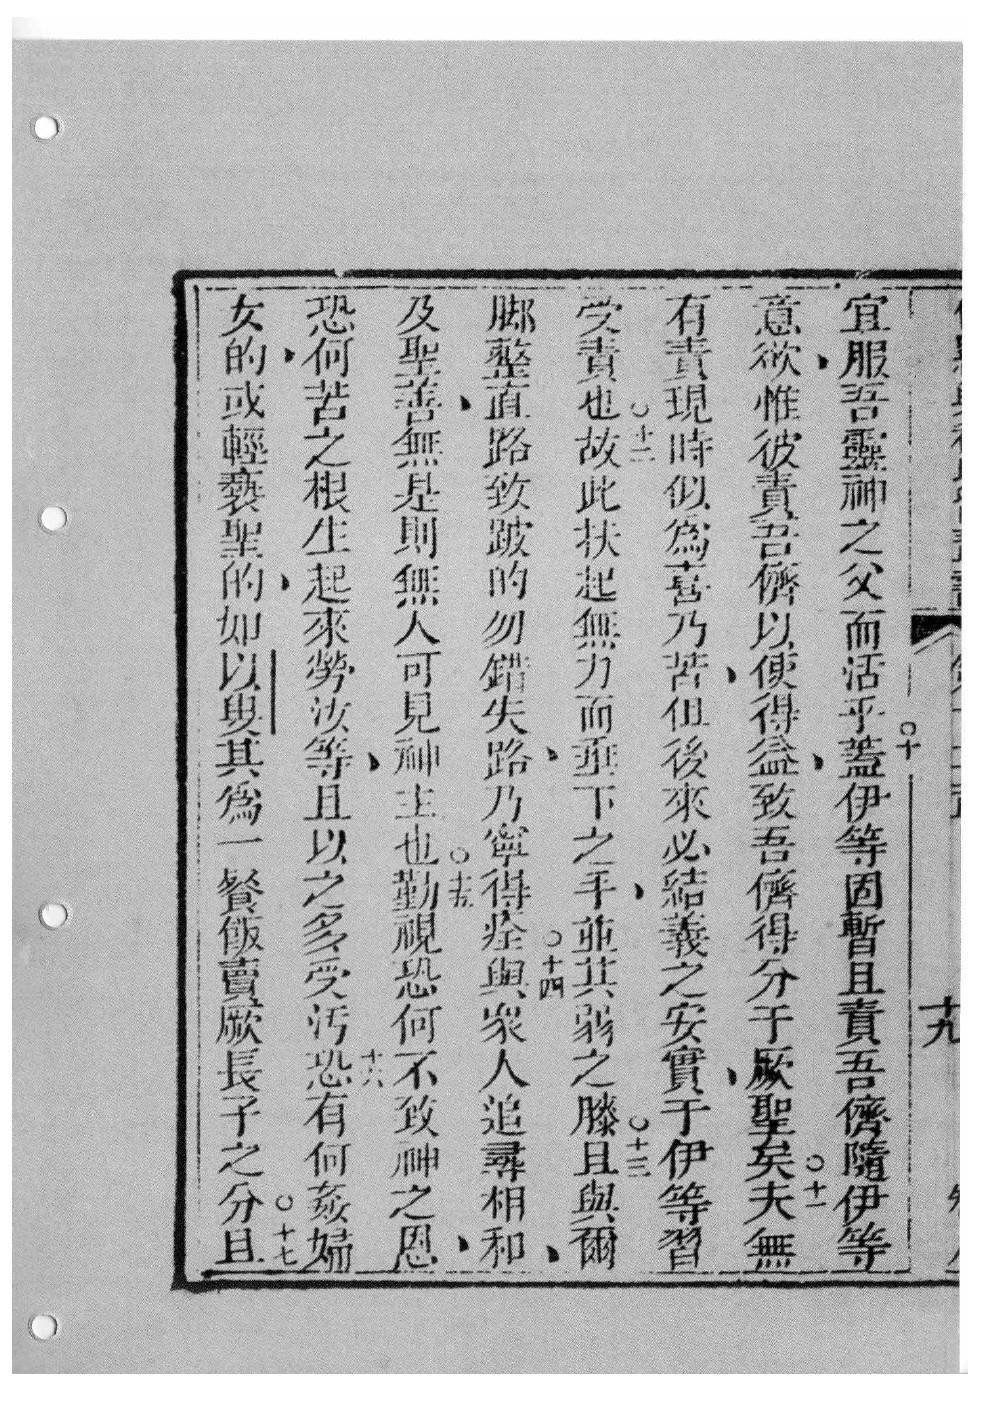 十九
宜服吾靈神之父而活乎○十蓋伊等固暫且責吾儕隨伊等
意欲、惟彼責吾儕以使得益、致吾儕得分于厥聖矣○十一夫無
有責現時似為喜乃苦、但後來必結義之安實、于伊等習
受責也○十二故此扶起無力而垂下之手、並其弱之膝○十三且與爾
脚整直路致跛的勿錯失路、乃寧得痊○十四與衆人追尋相和、
及聖善、無是則無人可見神主也○十五勤視恐何不致神之恩、
恐何苦之根生起來勞汝等、且以之多受汚十六恐有何姦婦
女的、或輕褻聖的、如以叟其為一餐飯賣厥長子之分○十七且